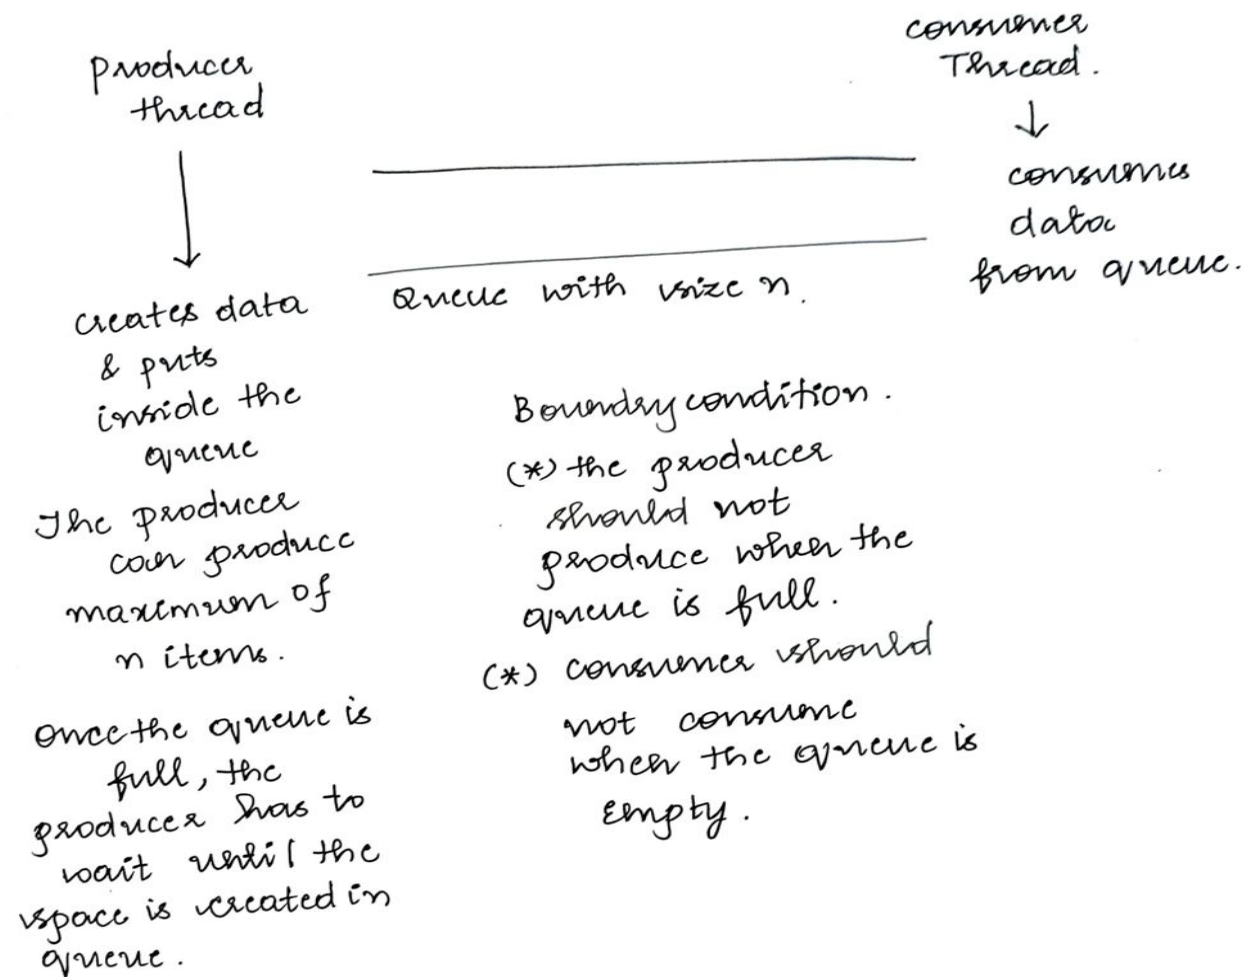 Producer
thread
creates data
& puts
inside the
queue
The producer
can produce
maximum of
n items.
Once the queue is
full, the
producer has to
wait until the
space is created in
queue.
Queue with size n.
Boundry condition.
(*) the producer
should not
produce when the
queue is full.
(*) consumer should
not consume
when the queue is
empty.
consumer
Thread.
consumes
data
from queue.